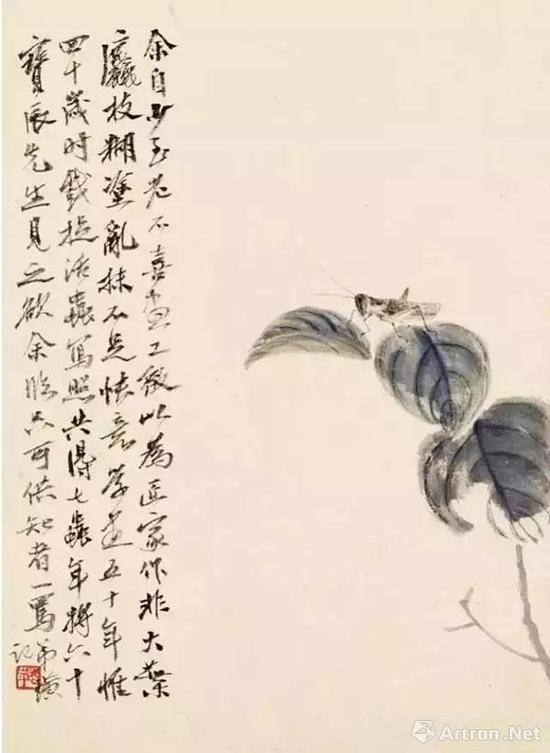 余自少至老不喜畫工緻以為匠家作非大葉
麤枝糊塗亂抹不足快意學畫五十年惟
四十歲时戲捉活蟲寫照共得七蟲年將六十
寶辰先生見之欲余臨只可供知者一罵弟璜
記
Artron.Net